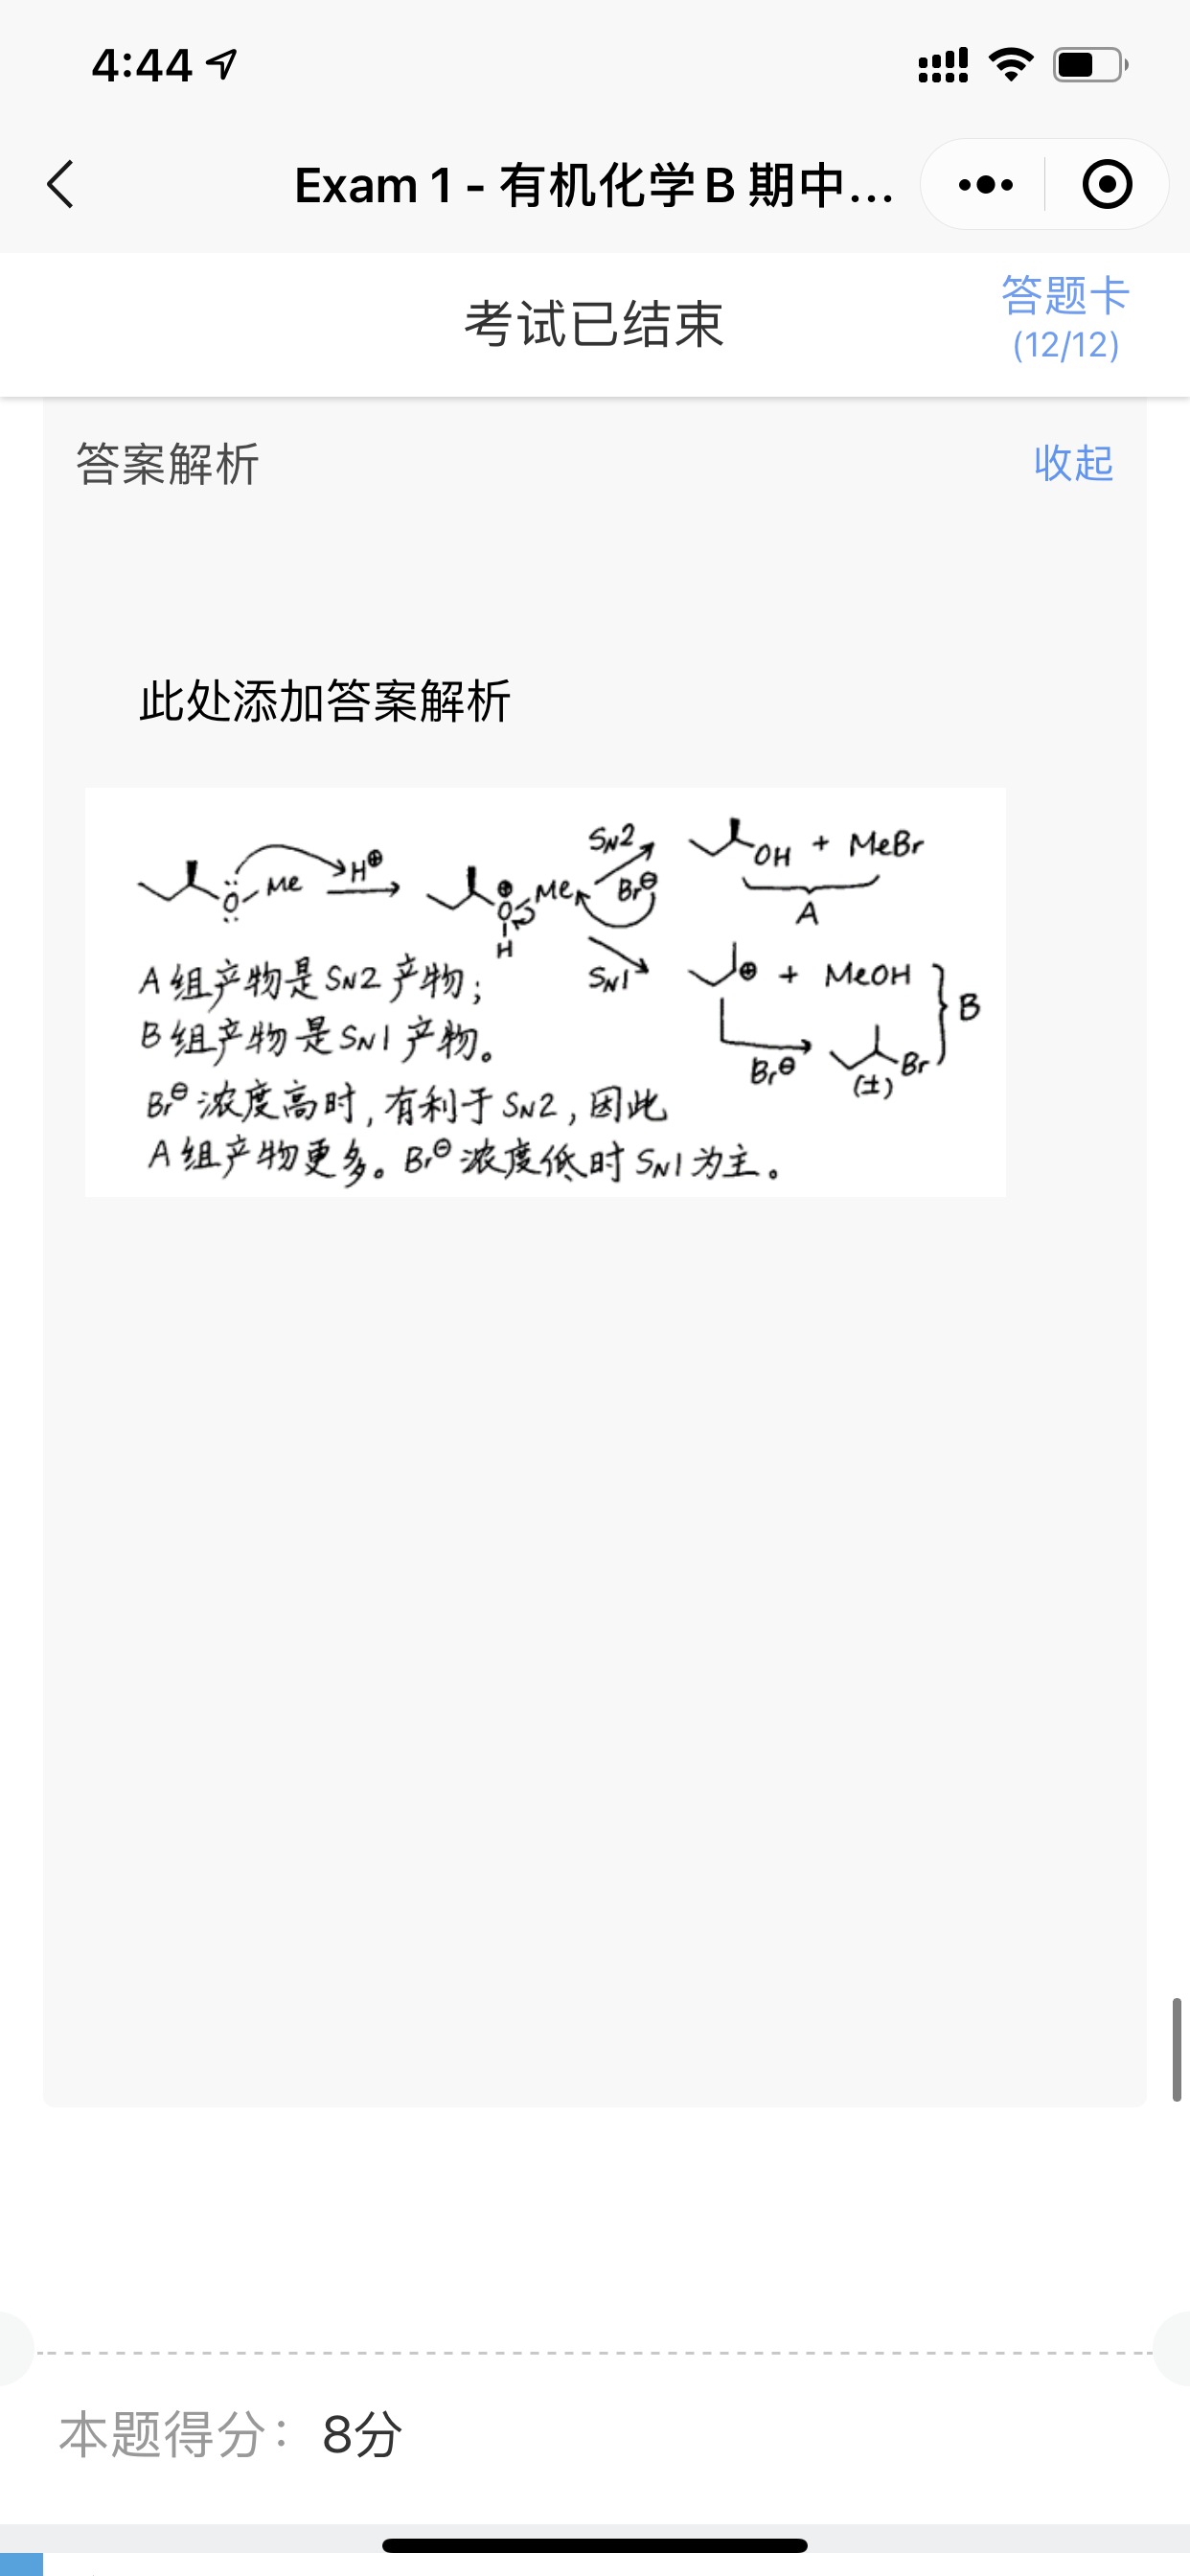 4:44
Exam 1 - 有机化学B 期中...
考试已结束
答题卡
(12/12)
答案解析
收起
此处添加答案解析
SN2
OH + MeBr
H⊕
Ö
Me
⊕
O
H
Me
Br⊖
A
SN1
⊕ + MeOH
B
Br⊖
Br
(±)
A组产物是SN2产物;
B组产物是SN1产物。
Br⊖浓度高时,有利于SN2,因此
A组产物更多。Br⊖浓度低时SN1为主。
本题得分: 8分